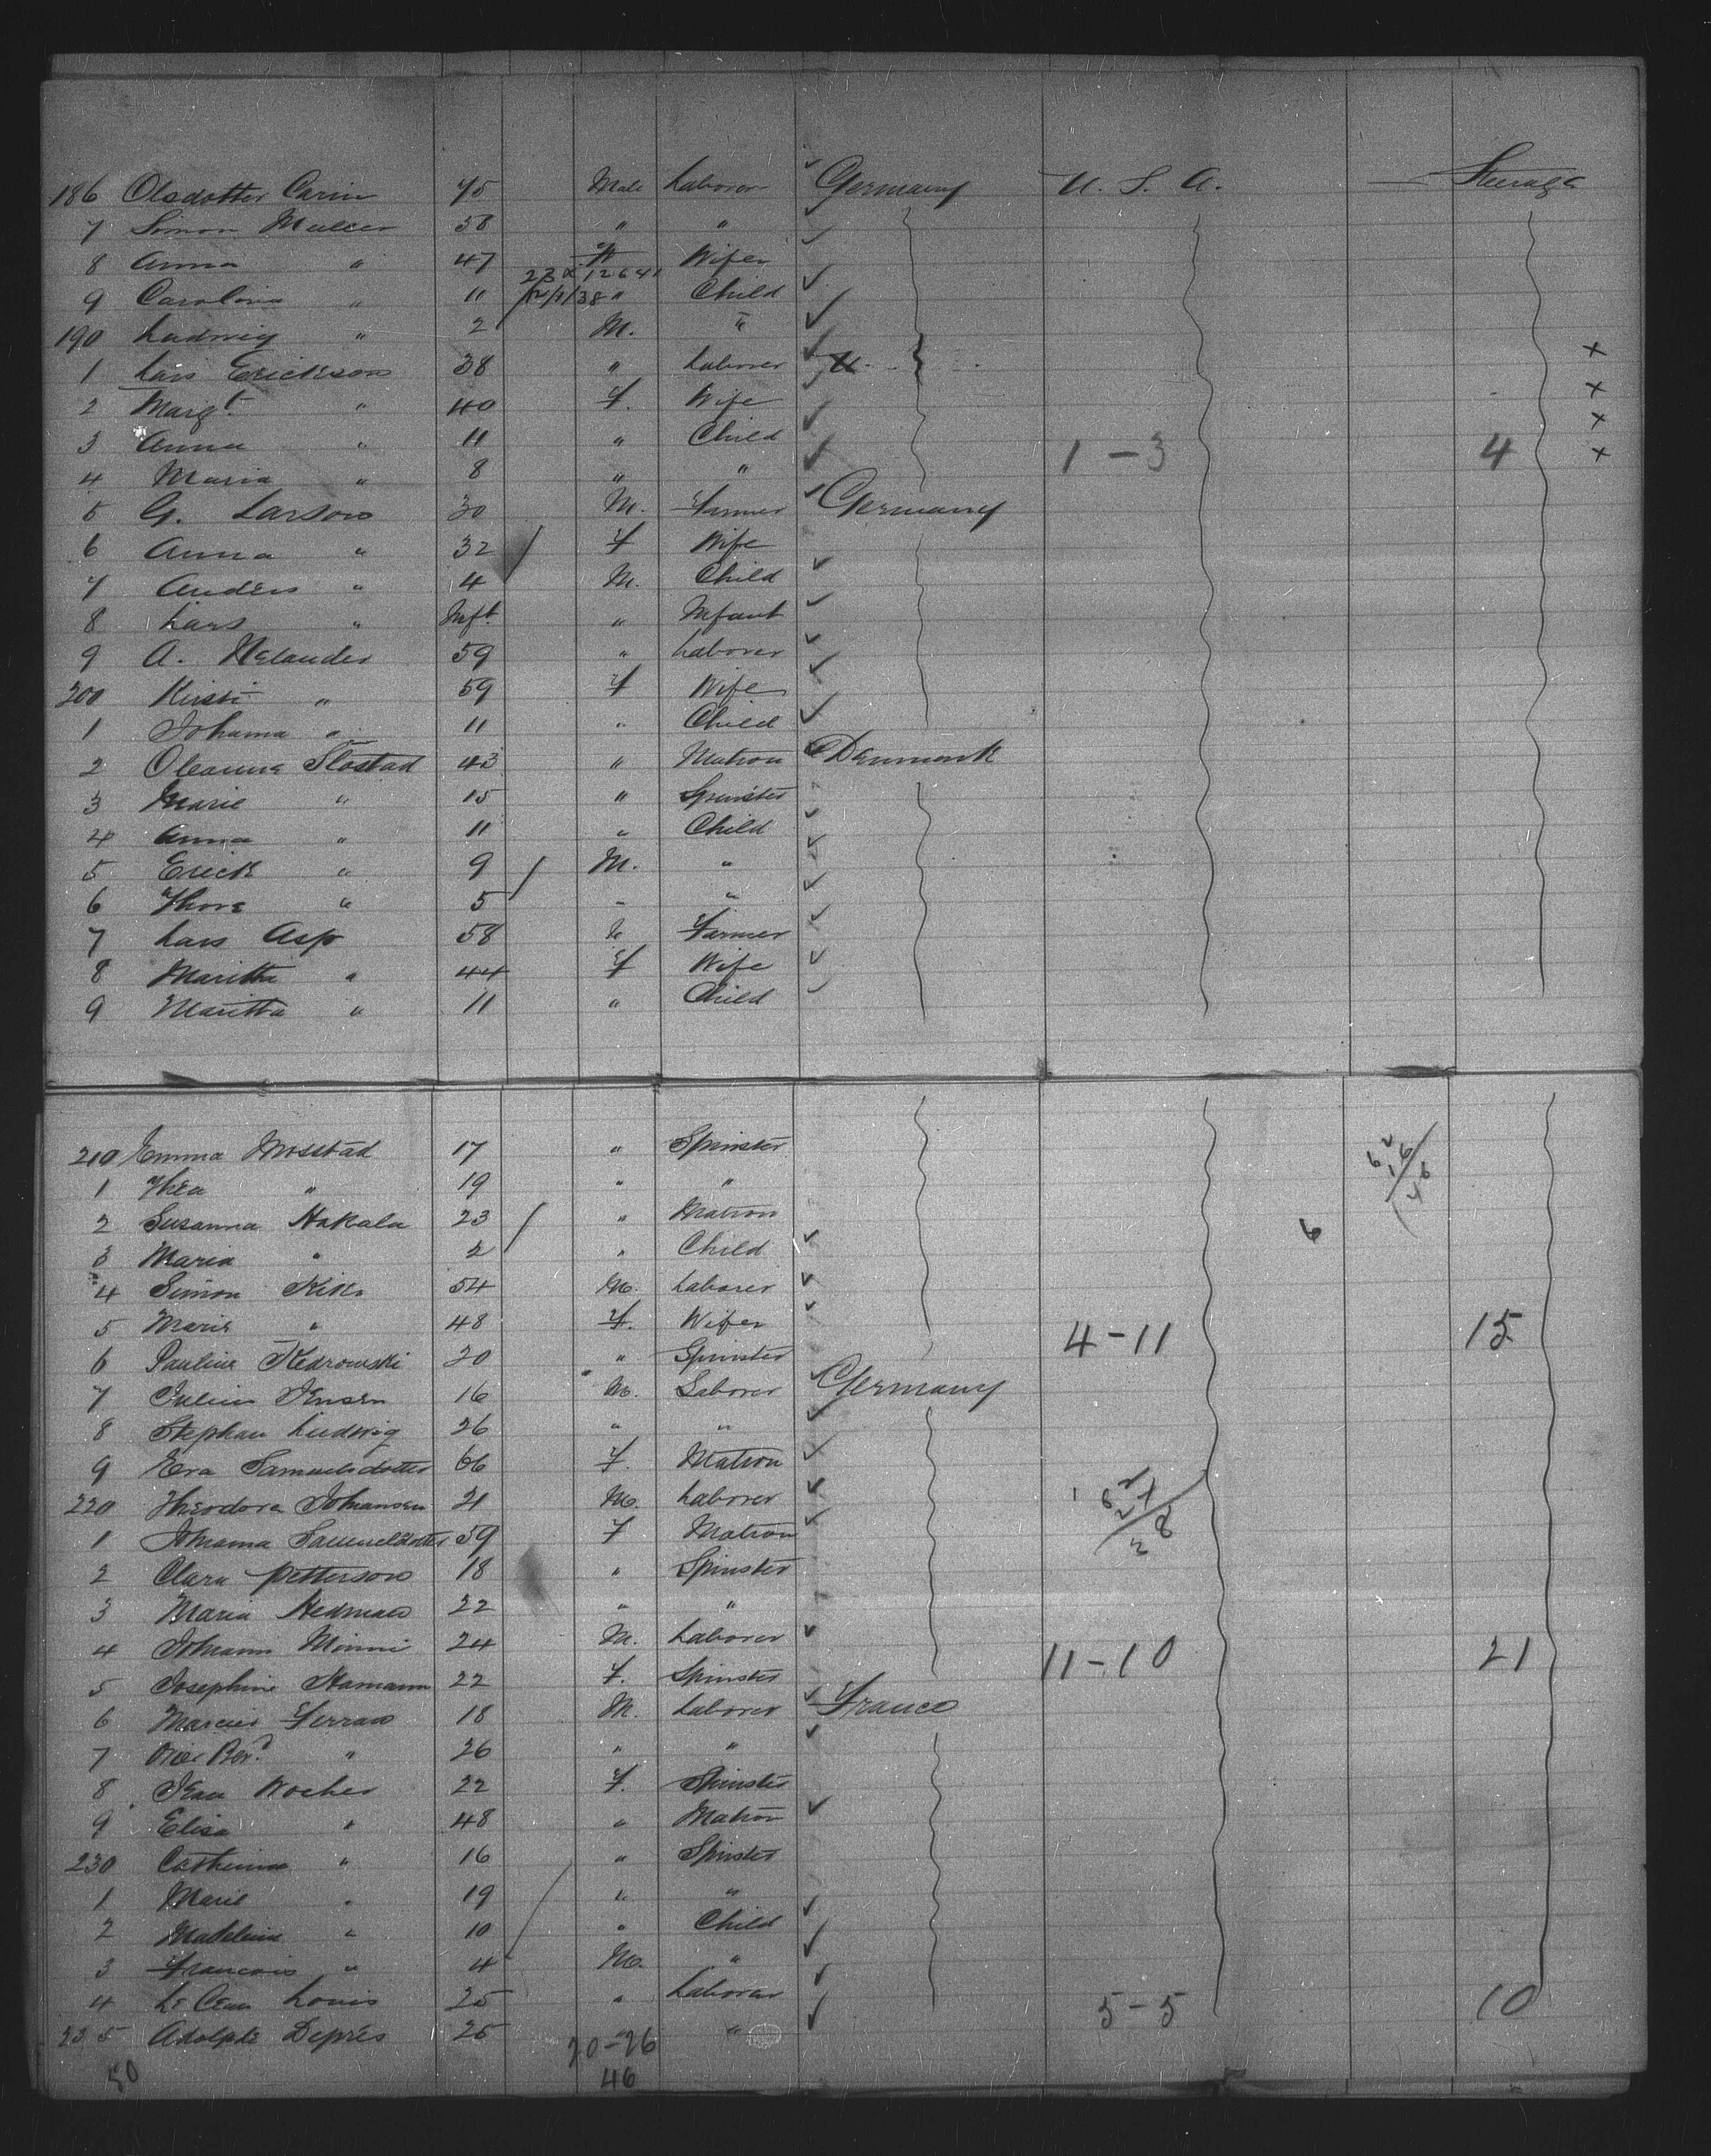 186 Olsdotter Carin 45 Male Laborer Germany U. S. A. Steerage
7 Simon Muller 58 " "
8 Anna " 47 F Wife
23 x 12641
9 Carolina " 11 12/1/38 " Child
190 Ludwig " 2 M. "
1 Lars Erickson 38 " Laborer x
2 Margt. " 40 F. Wife x
3 Anna " 11 " Child x
4 Maria " 8 " " 1 - 3 4 x
5 G. Larson 30 M. Farmer Germany
6 Anna " 32 F Wife
7 Anders " 4 M. Child
8 Lars " Inft. " Infant
9 A. Helander 59 " Laborer
200 Kirsti " 59 F Wife
1 Johanna " 11 " Child
2 Oleanna Slostad 43 " Matron Denmark
3 Marie " 15 " Spinster
4 Anna " 11 " Child
5 Erick " 9 M. "
6 Thore " 5 " "
7 Lars Asp 58 " Farmer
8 Maritta " 44 F Wife
9 Maritta " 11 " Child
210 Emma Mosstad 17 " Spinster
1 Thea " 19 " "
2 Susanna Hakala 23 " Matron 6
3 Maria " 2 " Child
4 Simon 54 M. Laborer
5 Marie " 48 F. Wife 4-11 15
6 Pauline Kedrowski 20 " Spinster
7 Julius Jensen 16 M. Laborer Germany
8 Stephan Ludwig 26 " "
9 Eva Samuelsdotter 66 F. Matron
220 Theodore Johansen 21 M. Laborer
1 Johanna Samuelsdotter 59 F Matron
2 Clara Petterson 18 " Spinster
3 Maria Hedman 22 " "
4 Johann Minni 24 M. Laborer 11-10 21
5 Josephine Hamann 22 F. Spinster
6 Ferrao 18 M. Laborer France
7 " 26 " "
8 Jean Wocher 22 F. Spinster
9 Elisa " 48 " Matron
230 Catherine " 16 " Spinster
1 Marie " 19 " "
2 Madeleine " 10 " Child
3 Francois " 4 M. "
4 Louis 25 " Laborer 5-5 10
235 Adolphe Deprés 25 " "
50 20-26
46